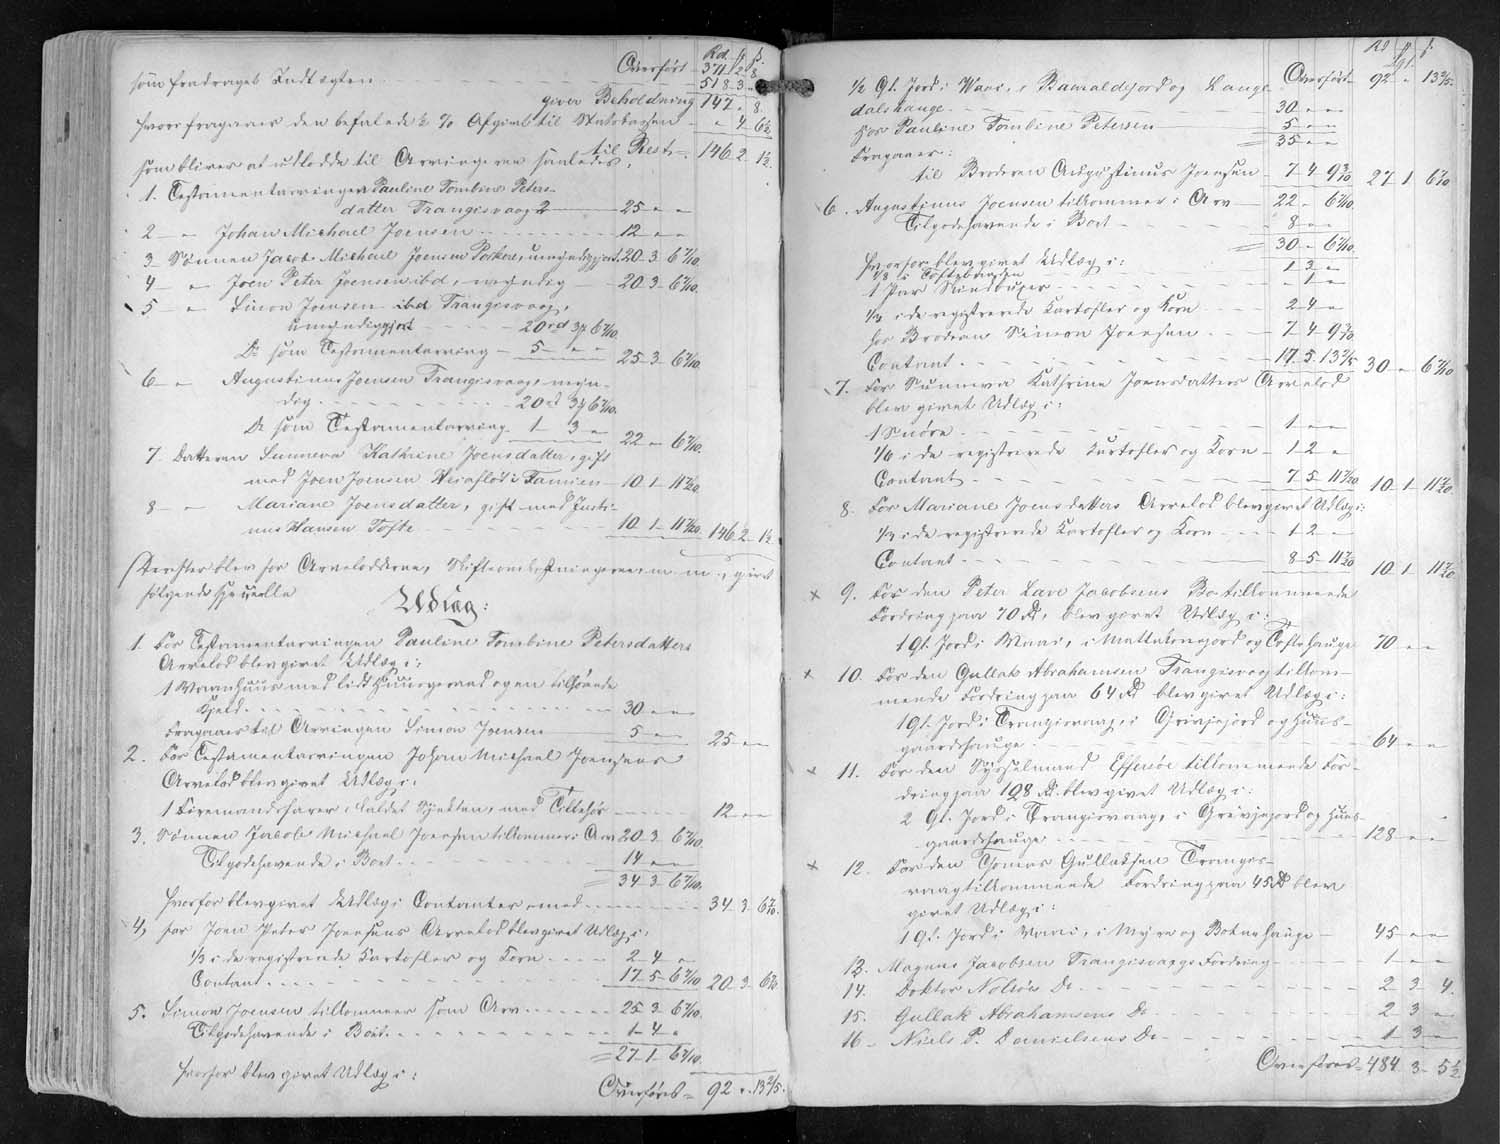 Rd. ₰ ß.
Overført 371 2 8
som fradraget Indtægten 518 3 "
giver Beholdning 147 " 8.
hvoraf fragaaer den befalede % Afgivt til Statskassen " 4 6½
til Rest 146 2 1½
som bliver at udlodde til Arvingerne saaledes:
1. Testamentarvingen Pauline Tombine Peters-
datter Trangisvaag 25 " "
2 — " Johan Michael Joensen 12 " "
3 Sønnen Jacob Michael Joensen Porkere, umyndiggjort 20 3 6 7/10.
4 — " Joen Peter Joensen ibd, myndig 20 3 6 7/10.
5 — " Simon Joensen ibd Trangisvaag,
umyndiggjort 20rd 3 6 7/10.
Do som Testamentarving 5 " " 25 3 6 7/10.
6 — " Augustinus Joensen Trangisvaag, myn-
dig 20rd 3 6 7/10.
Do som Testamentarving 1 3 " 22 " 6 7/10.
7. Datteren Sunneva Kathrine Joensdatter, gift
med Joen Joensen i Famien 10 1 11 7/20.
8 — " Mariane Joensdatter, gift med Justi-
nus Hansen Tofte 10 1 11 7/20. 146 2 1½
Derefter blev for Arvelodderne, Skifteomkostningerne m. m., givet
følgende specielle
Udlæg:
1. For Testamentarvingen Pauline Tombine Petersdatters
Arvelod blev givet Udlæg i:
1 Vaanhuus med lidt Huusgerand og en tilhørende
Kjeld 30 " "
Fragaaer til Arvingen Simon Joensen 5 " " 25 " "
2. For Testamentarvingen Johan Michael Joensens
Arvelod blev givet Udlæg i:
1 Firemandsfarer kaldet Spetten, med Tilbehør 12 " "
3. Sønnen Jacob Michael Joensen tilkommer i Arv 20 3 6 7/10.
Tilgodehavende i Boet 14 " "
34 3 6 7/10.
hvorfor blev givet Udlæg i Contanter med 34 3 6 7/10.
4, for Joen Peter Joensens Arvelod blev givet Udlæg i:
1/3 i de registrerede Kartofler og Korn 2 4 "
Contant 17 5 6 7/10 20 3 6 7/10
5. Simon Joensen tilkommer som Arv 25 3 6 7/10.
Tilgodehavende i Boet 1 4 "
27 1 6 7/10.
hvorfor blev givet Udlæg i:
Overføres 92 " 13 2/5.
Rd ₰ ß.
Overført 92 " 13 2/5.
½ Gl. Jord i Waai, i og Lange
dalshauge 30 " "
hos Pauline Tombine Petersen 5 " "
35 " "
Fragaaer:
til Broderen Augustinus Joensen 7 4 9 3/10 27 1 6 7/10
6. Augustinus Joensen tilkommer i Arv 22 " 6 7/10.
Tilgodehavende i Boet 8 " "
30 " 6 7/10.
hvorfor blev givet Udlæg i:
1/8 i 1 3 "
1 Par Skindbuxer " 1 "
1/3 i de registrerede Kartofler og Korn 2 4 "
hos Broderen Simon Joensen 7 4 9 3/10
Contant 17 5 13 2/5 30 " 6 7/10
7. For Sunneva Kathrine Joensdatters Arvelod
blev givet Udlæg i:
1 Snøre 1 " "
1/6 i de registrerede Kartofler og Korn 1 2 "
Contant 7 5 11 7/20 10 1 11 7/20
8. For Mariane Joensdatters Arvelod blev givet Udlæg i:
i de registrerede Kartofler og Korn 1 2 "
Contant 8 5 11 7/20 10 1 11 7/20
9. For den Peter Lave Jacobsens Bo tilkommende
Fordring paa 70 Rd, blev givet Udlæg i:
1 Gl. Jord i Waai, i og Toftehauge 70 " "
10. For den Gullak Abrahamsen Trangisvaag tilkom-
mende Fordring paa 64 Rd blev givet Udlæg i:
1 Gl. Jord i Trangisvaag, i Grivjejord og Huus-
gaardshauge 64 " "
11. For den Sysselmand Effersøe tilkommende For-
dring paa 128 Rd. blev givet Udlæg i:
2 Gl. Jord i Trangisvaag, i Grivjejord og Huus
gaardshauge 128 " "
12. For den Thomas Gullaksen Trangis-
vaag tilkommende Fordring paa 45 Rd blev
givet Udlæg i:
1 Gl. Jord i Vaai, i Myre og Botnehauge 45 " "
13. Magnus Jacobsen Trangisvaags Fordring 1 " "
14. Doktor Nolsøe Do 2 3 4.
15. Gullak Abrahamsens Do 2 3 "
16 — Niels P. Danielsens Do 1 3 "
Overføres 484 3 5½